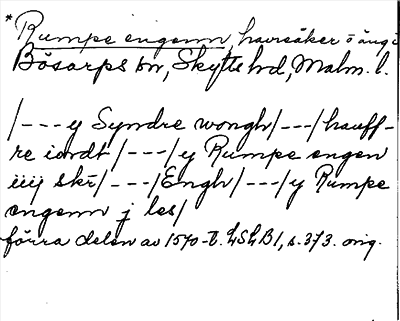 * Rumpe engenn, havreåker o äng i
Bösarps sn, Skytts hd, Malm. l.
/---y Syndre wongh/---/hauff-
re iordt/---/y Rumpe engen
iiij skr/---/Engh/---/y Rumpe
engenn j les/
förra delen av 1570-t. LSLB1, s. 373. orig.